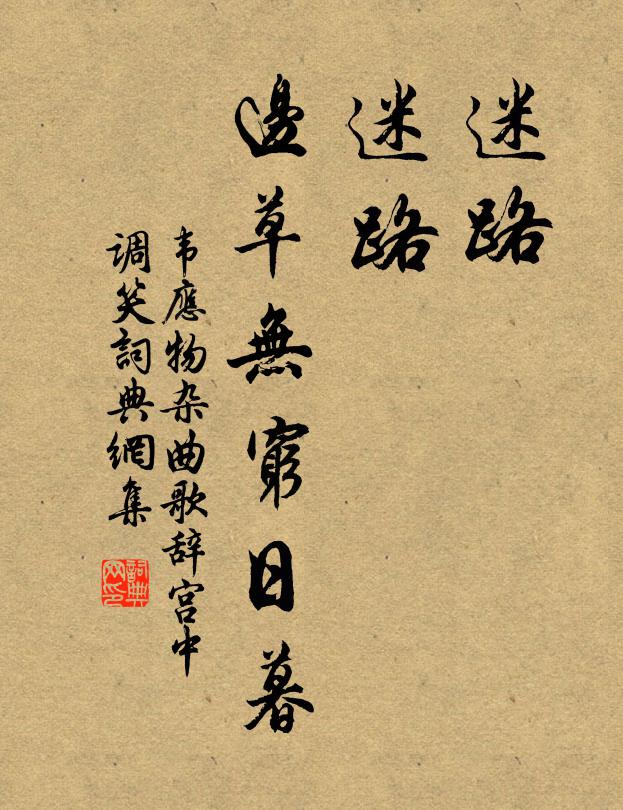 迷路
迷路
邊草無窮日暮
韦應物杂曲歌辞宫中
调笑詞典網集
詞典
网印